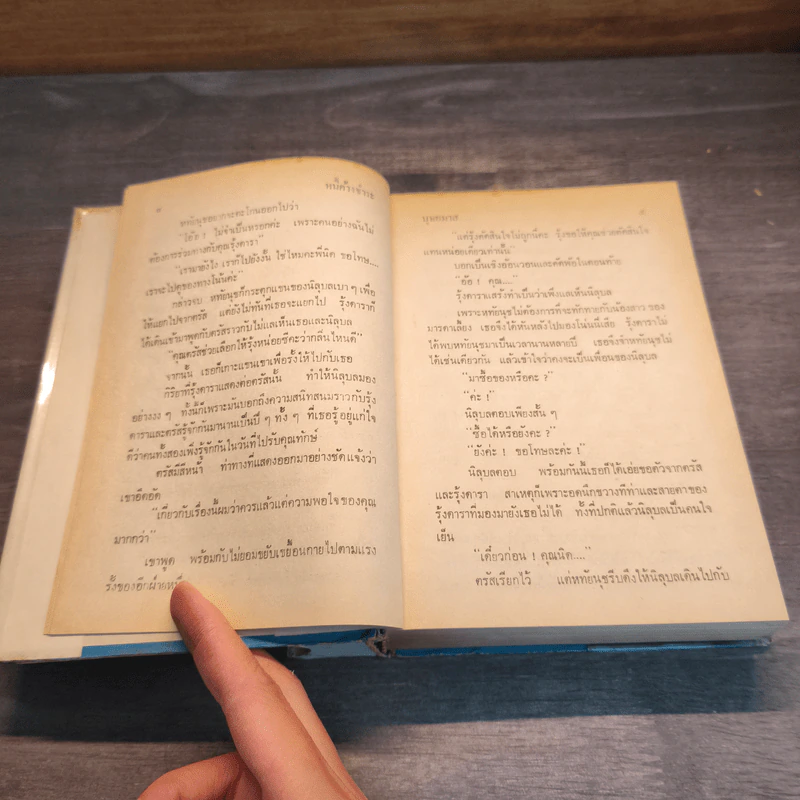 ๘
หทัยนุชอยากจะตะโกนออกไปว่า
"โอ๊ย ! ไม่จำเป็นหรอกค่ะ เพราะคนอย่างฉันไม่
ต้องการร่วมทางกับคุณรุ้งดารา"
"เรามายังไง เราก็ไปยังงั้น ใช่ไหมคะพี่นิด ขอโทษ....
เราจะไปดูของทางโน้นค่ะ"
กล่าวจบ หทัยนุชก็กระตุกแขนของนิลุบลเบา ๆ เพื่อ
ให้แยกไปจากตรัส แต่ยังไม่ทันที่เธอจะแยกไป รุ้งดาราก็
ได้เดินเข้ามาพูดกับตรัสราวกับไม่แลเห็นเธอและนิลุบล
"คุณตรัสช่วยเลือกให้รุ้งหน่อยซีคะว่ากลิ่นไหนดี"
จากนั้น เธอก็เกาะแขนเขาเพื่อรั้งให้ไปกับเธอ
กิริยาที่รุ้งดาราแสดงต่อตรัสนั้น ทำให้นิลุบลมอง
อย่างงง ๆ ทั้งนี้ก็เพราะมันบอกถึงความสนิทสนมราวกับรุ้ง
ดาราและตรัสรู้จักกันมานานเป็นปี ๆ ทั้ง ๆ ที่เธอรู้อยู่แก่ใจ
ดีว่าคนทั้งสองเพิ่งรู้จักกันในวันที่ไปรับคุณทักษ์
ตรัสมีสีหน้า ท่าทางที่แสดงออกมาอย่างชัดแจ้งว่า
เขาอึดอัด
"เกี่ยวกับเรื่องนี้ผมว่าควรแล้วแต่ความพอใจของคุณ
มากกว่า"
เขาพูด พร้อมกับไม่ยอมขยับเขยื้อนกายไปตามแรง
รั้งของอีกฝ่ายหนึ่ง
บุษยมาส
๙
"แต่รุ้งตัดสินใจไม่ถูกนี่คะ รุ้งขอให้คุณช่วยตัดสินใจ
แทนหน่อยเดียวเท่านั้น"
บอกเป็นเชิงอ้อนวอนและตัดพ้อในตอนท้าย
"อ๊อ ! คุณ...."
รุ้งดาราแสร้งทำเป็นว่าเพิ่งแลเห็นนิลุบล
เพราะหทัยนุชไม่ต้องการที่จะทักทายกับน้องสาว ของ
มารดาเลี้ยง เธอจึงได้หันหลังไปมองโน่นนี่เสีย รุ้งดาราไม่
ได้พบหทัยนุชมาเป็นเวลานานหลายปี เธอจึงจำหทัยนุชไม่
ได้เช่นเดียวกัน แล้วเข้าใจว่าคงจะเป็นเพื่อนของนิลุบล
"มาซื้อของหรือคะ ?"
"ค่ะ !"
นิลุบลตอบเพียงสั้น ๆ
"ซื้อได้หรือยังคะ ?"
"ยังค่ะ ! ขอโทษละค่ะ !"
นิลุบลตอบ พร้อมกันนี้เธอก็ได้เอ่ยขอตัวจากตรัส
และรุ้งดารา สาเหตุก็เพราะอดนึกขวางทีท่าและสายตาของ
รุ้งดาราที่มองมายังเธอไม่ได้ ทั้งที่ปกติแล้วนิลุบลเป็นคนใจ
เย็น
"เดี๋ยวก่อน ! คุณนิด...."
ตรัสเรียกไว้ แต่หทัยนุชรีบดึงให้นิลุบลเดินไปกับ